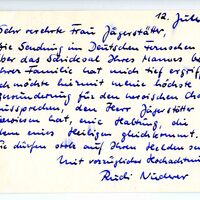 12. Juli
Sehr verehrte Frau Jägerstätter,
die Sendung im Deutschen Fernsehen
über das Schicksal Ihres Mannes
Ihrer Familie hat mich tief ergriff
ich möchte hiermit meine höchste
Bewunderung für den heroischen
aussprechen, den Herr Jägerstätter
bewiesen hat, eine Haltung, die
dem eines Heiligen gleichkommt.
Sie dürfen stolz auf Ihren Helden
Mit vorzüglicher Hochachtun
Rudi